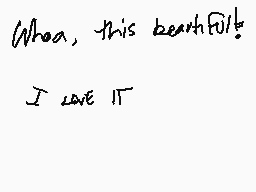 Whoa, this beartiful!
I LOVE IT